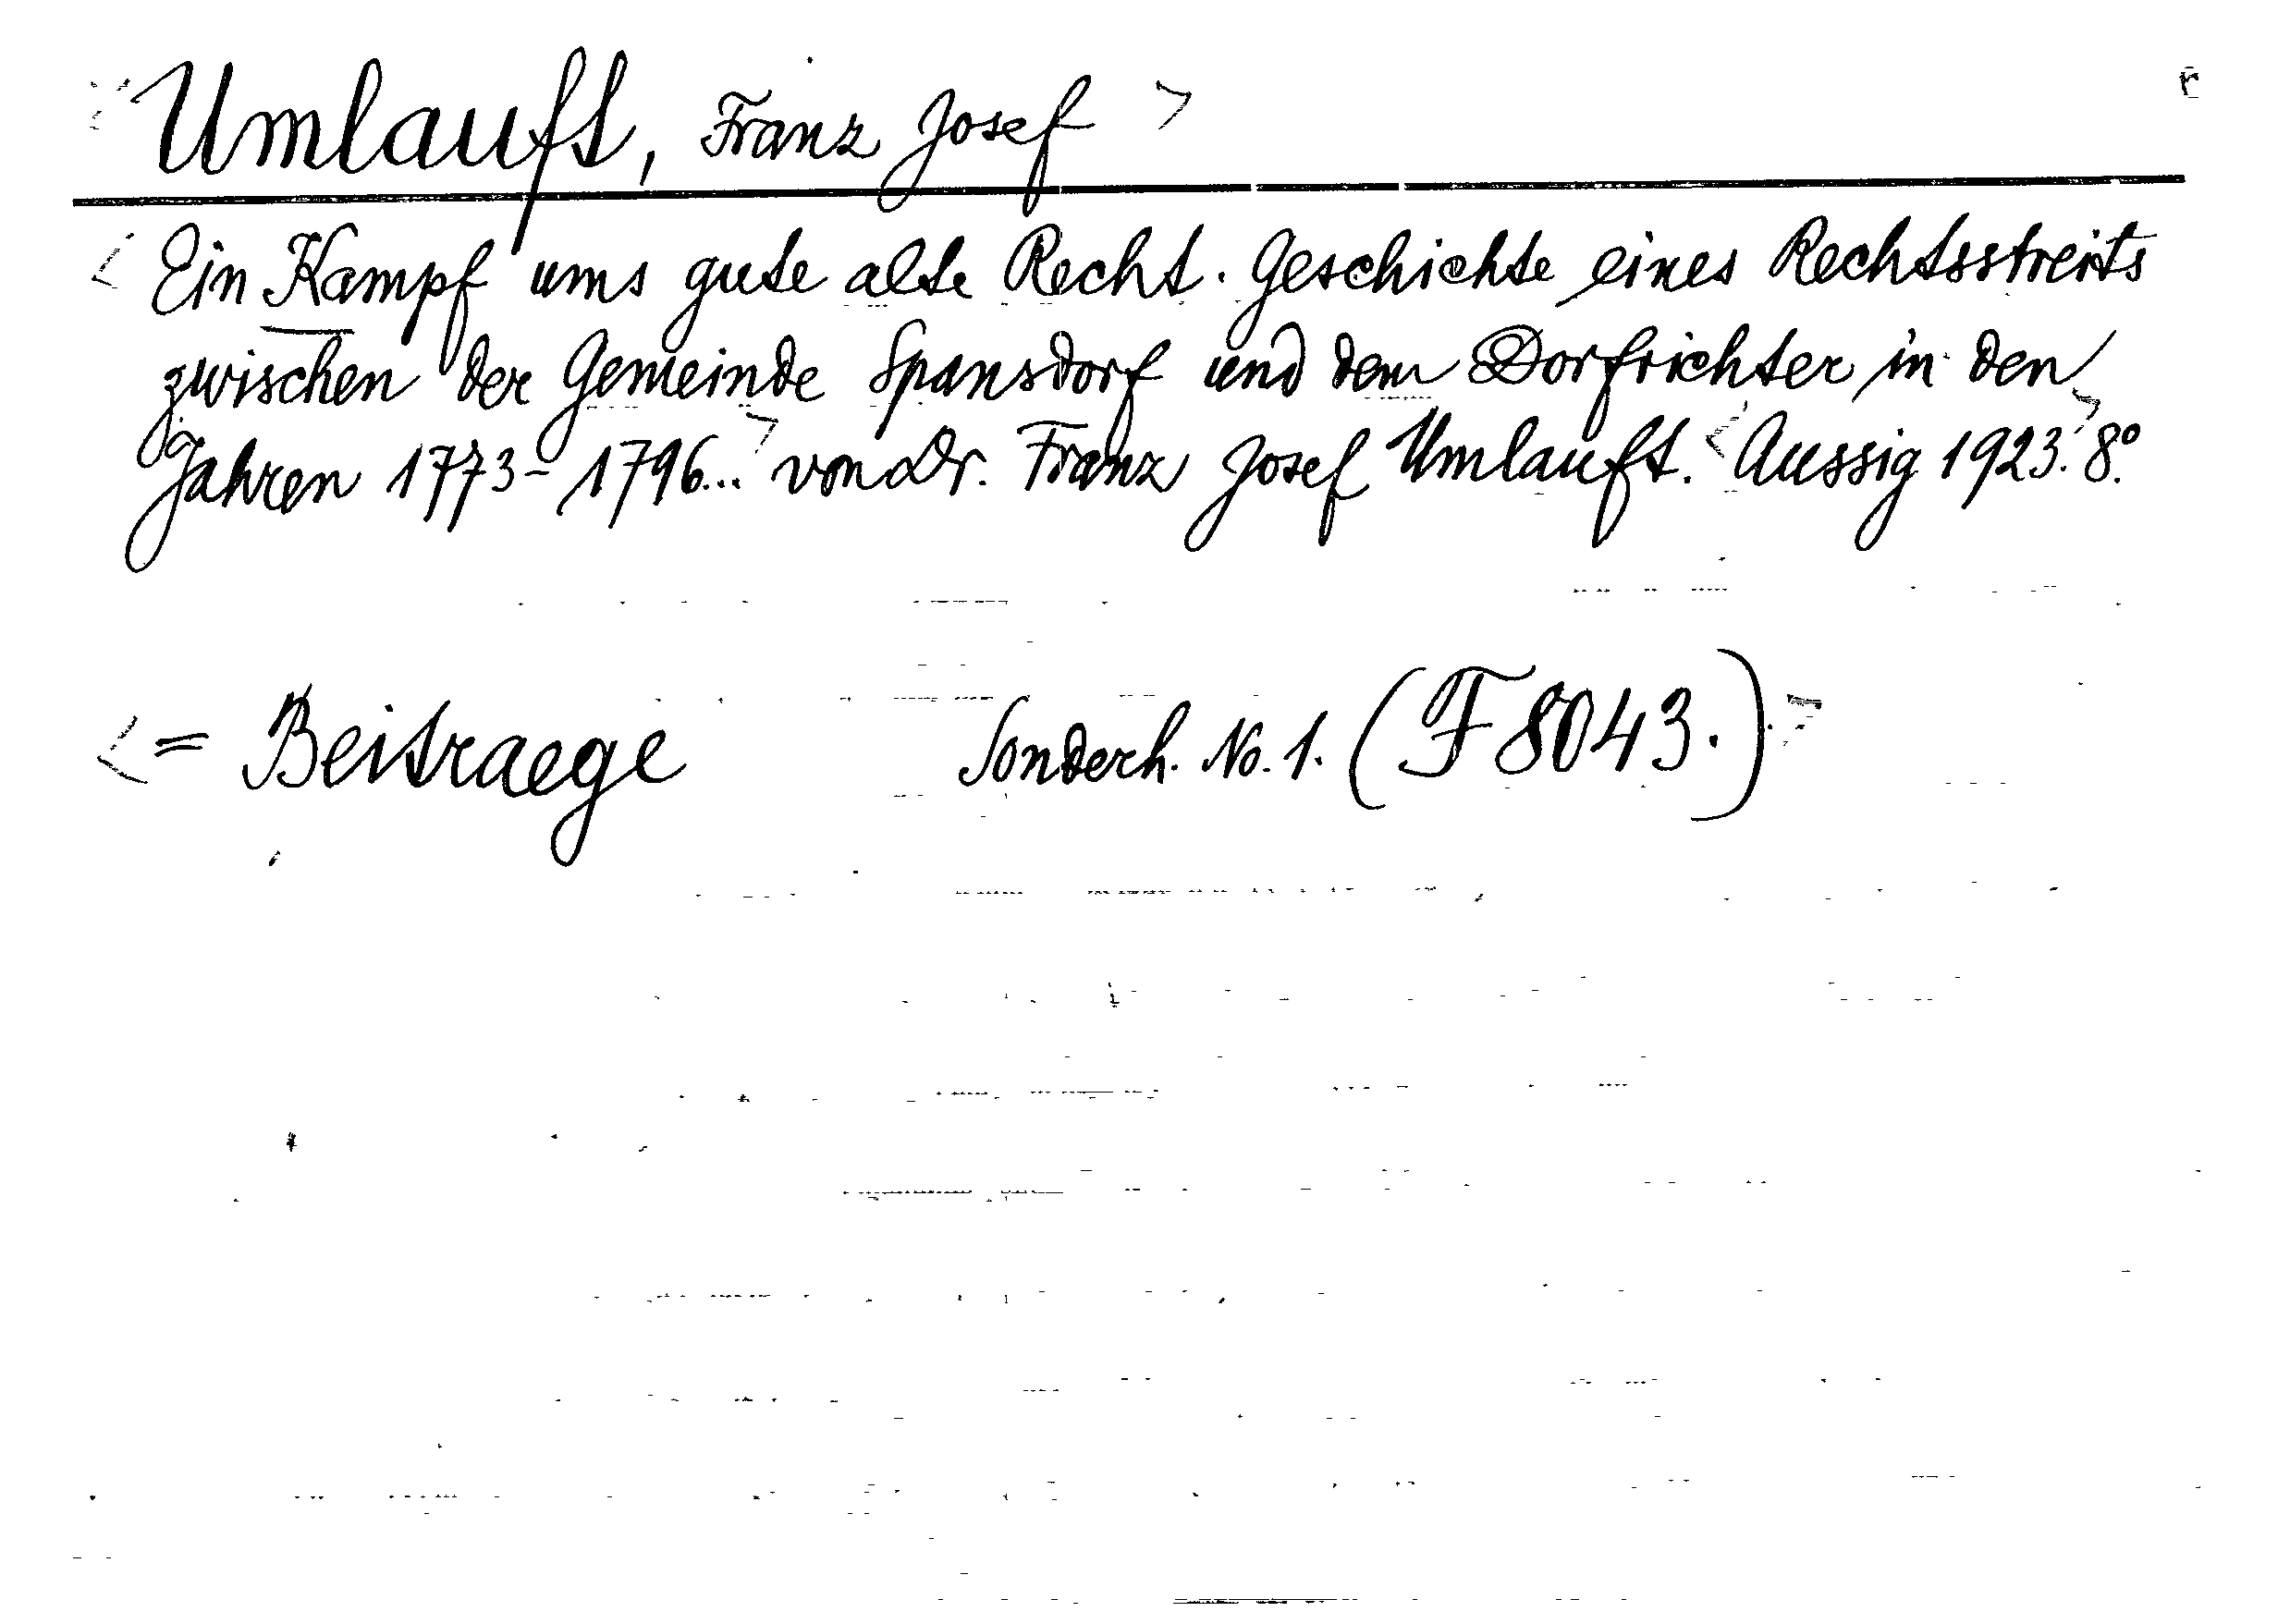 <Umlauft, Franz Josef>
<Ein Kampf ums gute alte Recht. Geschichte eines Rechtsstreits
zwischen der Gemeinde Spansdorf und dem Dorfrichter in den
Jahren 1773-1796...> von Dr. Franz Josef Umlauft. <Aussig 1923.> 8°.
<= Beitraege Sonderh. No. 1. (F 8043.)>